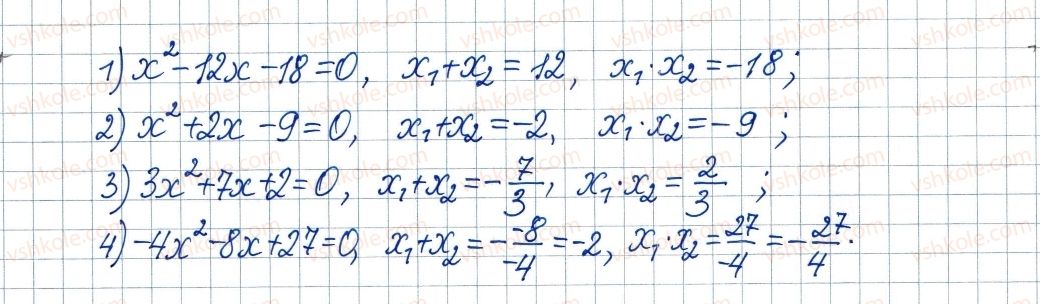 1) x² - 12x - 18 = 0, x₁ + x₂ = 12, x₁ · x₂ = -18;
2) x² + 2x - 9 = 0, x₁ + x₂ = -2, x₁ · x₂ = -9 ;
3) 3x² + 7x + 2 = 0, x₁ + x₂ = -7/3, x₁ · x₂ = 2/3 ;
4) -4x² - 8x + 27 = 0, x₁ + x₂ = - -8/-4 = -2, x₁ · x₂ = 27/-4 = -27/4.